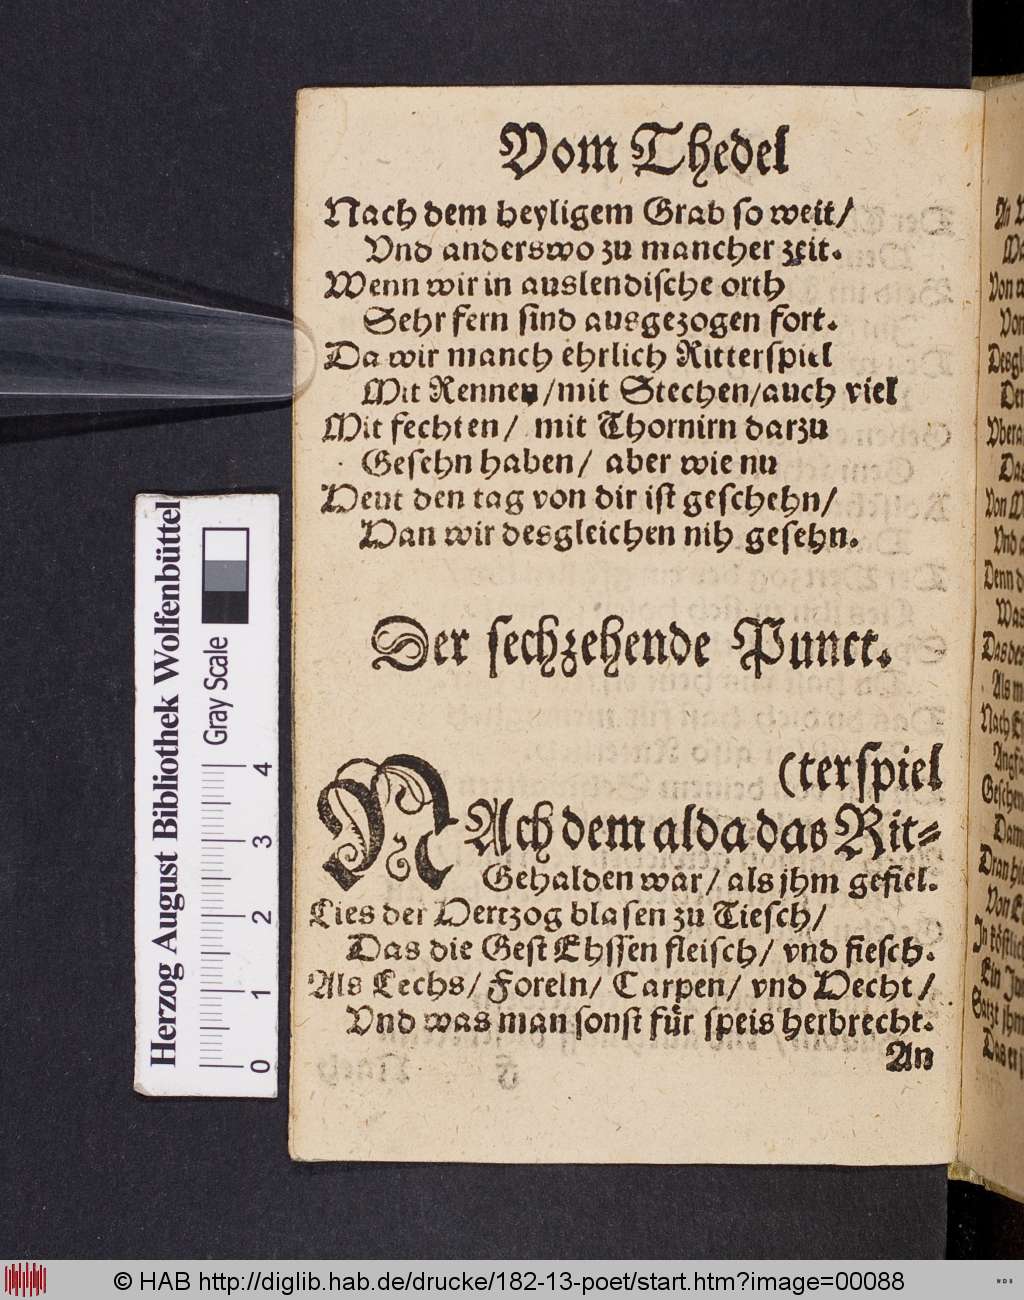 Vom Thedel
Nach dem heyligem Grab so weit/
Vnd anderswo zu mancher zeit.
Wenn wir in auslendische orth
Sehr fern sind ausgezogen fort.
Da wir manch ehrlich Ritterspiel
Mit Rennen/mit Stechen/auch viel
Mit fechten/ mit Thornirn darzu
Gesehn haben/ aber wie nu
Heut den tag von dir ist geschehn/
Han wir desgleichen nih gesehn.
Der sechzehende Punct.
(terspiel
NAch dem alda das Rit-
Gehalden war/ als jhm gefiel.
Lies der Hertzog blasen zu Tiesch/
Das die Gest Ehssen fleisch/ vnd fiesch.
Als Lechs/ Foreln/ Carpen/ vnd Hecht/
Vnd was man sonst für speis herbrecht.
An
Herzog August Bibliothek Wolfenbüttel
Gray Scale
0 1 2 3 4
© HAB http://diglib.hab.de/drucke/182-13-poet/start.htm?image=00088